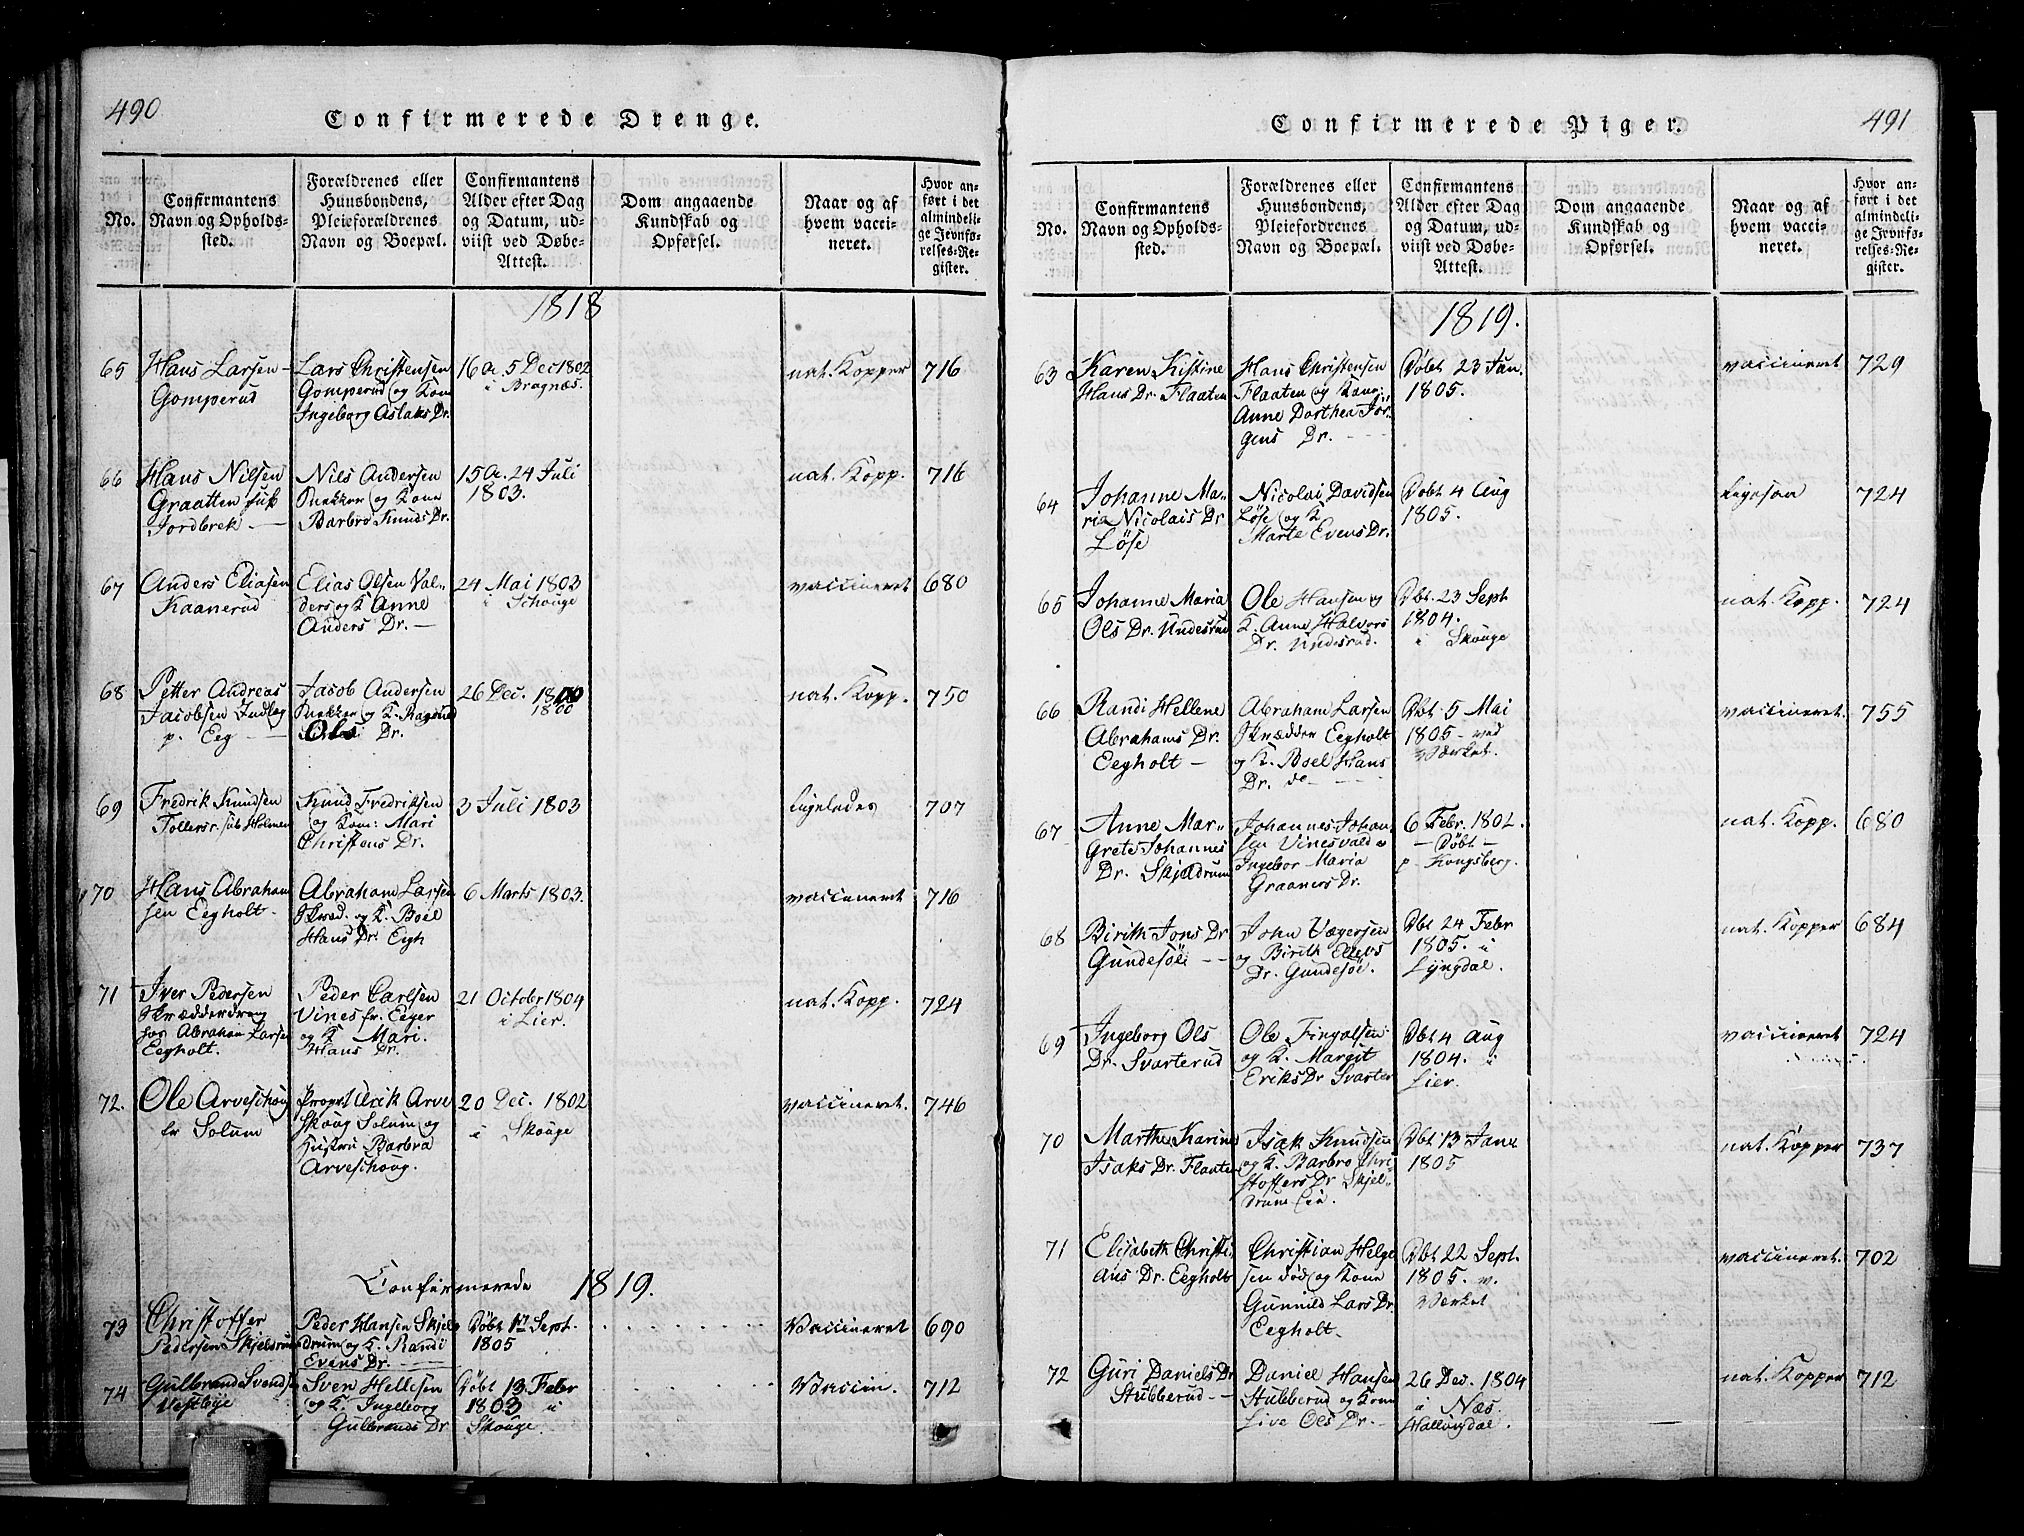 490
Confirmerede Drenge.
No.
Confirmantens
Navn og Opholds-
sted.
Forældrenes eller
Huusbondens,
Pleieforældrenes
Navn og Boepæl.
Confirmantens
Alder efter Dag
og Datum, ud-
viist ved Døbe-
Attest.
Dom angaaende
Kundskab og
Opførsel.
Naar og af
hvem vacci-
neret.
Hvor an-
ført i det
almindeli-
ge Jevnfø-
relses-Re-
gister.
1818
65
Hans Larsen
Gomperud
Lars Christensen
Gomperud og Kone
Ingeborg Aslaks Dr.
16 a. 5 Dec 1802
i Bragnæs.
nat. Kopper
716
66
Hans Nilsen
Graatten
Jordbrek
Nils Andersen
og Kone
Barbro Knuds Dr.
15 a. 24 Juli
1803.
nat. Kopp.
716
67
Anders Eliasen
Kaanerud
Elias Olsen Val-
ders og K Anne
Anders Dr.
24 Mai 1803
i Schouge
vaccineret
680
68
Petter Andreas
Jacobsen
p. Eeg
Jacob Andersen
og K. Ragnild
Ols Dr.
26 Dec.
1800
nat. Kopp.
750
69
Fredrik Knudsen
Tollersr. sub Holmen
Knud Fredriksen
og Kone: Mari
Christens Dr.
3 Juli 1803
ligeledes
707
70
Hans Abraham
sen Eegholt.
Abraham Larsen
Skræd. og K. Boel
Hans Dr. Eegh
6 Marts 1803.
vaccineret
716
71
Iver Pedersen
Skrædderdreng
hos Abraham Larsen
Eegholt.
Peder Carlsen
Vines fr. Eeger
og K Mari
Hans Dr.
21 Octobr 1804
i Lier.
nat. Kopp.
724
72.
Ole Arveschoug
fr Solum
Propr. Ulrik Arve
skoug Solum og
Hustru Barbra
Arveschoug.
20 Dec. 1802
i Skouge
vaccineret.
746
Confirmerede 1819.
73
Christoffer
Pedersen Skjeldrum
Peder Hansen Skjel
drum og K. Randi
Evens Dr.
Døbt 1st Sept.
1805
Vaccineret
690
74
Gulbrand Svends
Vestbye
Sven Hellesen
og K. Ingeborg
Gulbrands Dr
Døbt 13 Febr
1803 i
Skouge.
Vaccin.
712
491
Confirmerede Piger.
No.
Confirmantens
Navn og Opholds-
sted.
Forældrenes eller
Huusbondens,
Pleiefordrenes
Navn og Boepæl.
Confirmantens
Alder efter Dag
og Datum, ud-
viist ved Døbe-
Attest.
Dom angaaende
Kundskab og
Opførsel.
Naar og af
hvem vacci-
neret.
Hvor an-
ført i det
almindeli-
ge Jevnfø-
relses-Re-
gister.
1819.
63
Karen Kistine
Hans Dr. Flaaten
Hans Christensen
Flaaten og Kone:
Anne Dorthea Jør-
gens Dr.
Døbt 23 Jan.
1805.
vaccineret
729
64
Johanne Ma-
ria Nicolais Dr
Løse
Nicolai Davidsen
Løse og K
Marte Evens Dr.
Døbt 4 Aug
1805.
ligesaa
724
65
Johanne Maria
Ols Dr. Undesrud
Ole Hansen og
K. Anne Halvors
Dr. Undesrud.
Dbt. 23 Sept
1804.
i Skouge
nat. Kopp.
724
66
Randi Hellene
Abrahams Dr.
Eegholt
Abraham Larsen
Skrædder Eegholt
og K. Boel Hans
Dr. do
Dbt 5 Mai
1805 - ved
Værket.
vaccineret.
755
67
Anne Mar-
grete Johannes
Dr. Skjeldrum
Johannes Johan
sen Vinesvald &
Ingebor Maria
Graaners Dr.
6 Febr. 1802.
Døbt
p Kongsberg.
nat. Kopp.
680
68
Birith Jons Dr
Gundesöe
John Vegersen
og Birith Ellevs
Dr. Gundesöe.
Dbt 24 Febr
1805. i
Lÿngdal.
nat. Kopper
684
69
Ingeborg Ols
Dr. Svarterud
Ole Fingalsen
og K. Margit
Eriks Dr Svarter
Dbt 4 Aug
1804. i
Lier.
vaccineret
724
70
Marthe Karine
Isaks Dr. Flaaten
Isak Knudsen
og K. Barbro Chri
stoffers Dr Skjel-
drum Eie.
Dbt 13 Jane
1805
nat. Kopper
737
71
Elisabeth Christi
ans Dr. Eegholt
Christian Helge
sen død og Kone
Gunnild Lars Dr.
Eegholt.
Dbt 22 Sept.
1805. v.
Værket
vaccineret.
702
72
Guri Daniels Dr
Stubberud
Daniel Hansen
Stubberud og Kone
Live Ols Dr.
26 Dec. 1804
i Næs.
Hallingdal.
nat. Kopper
712